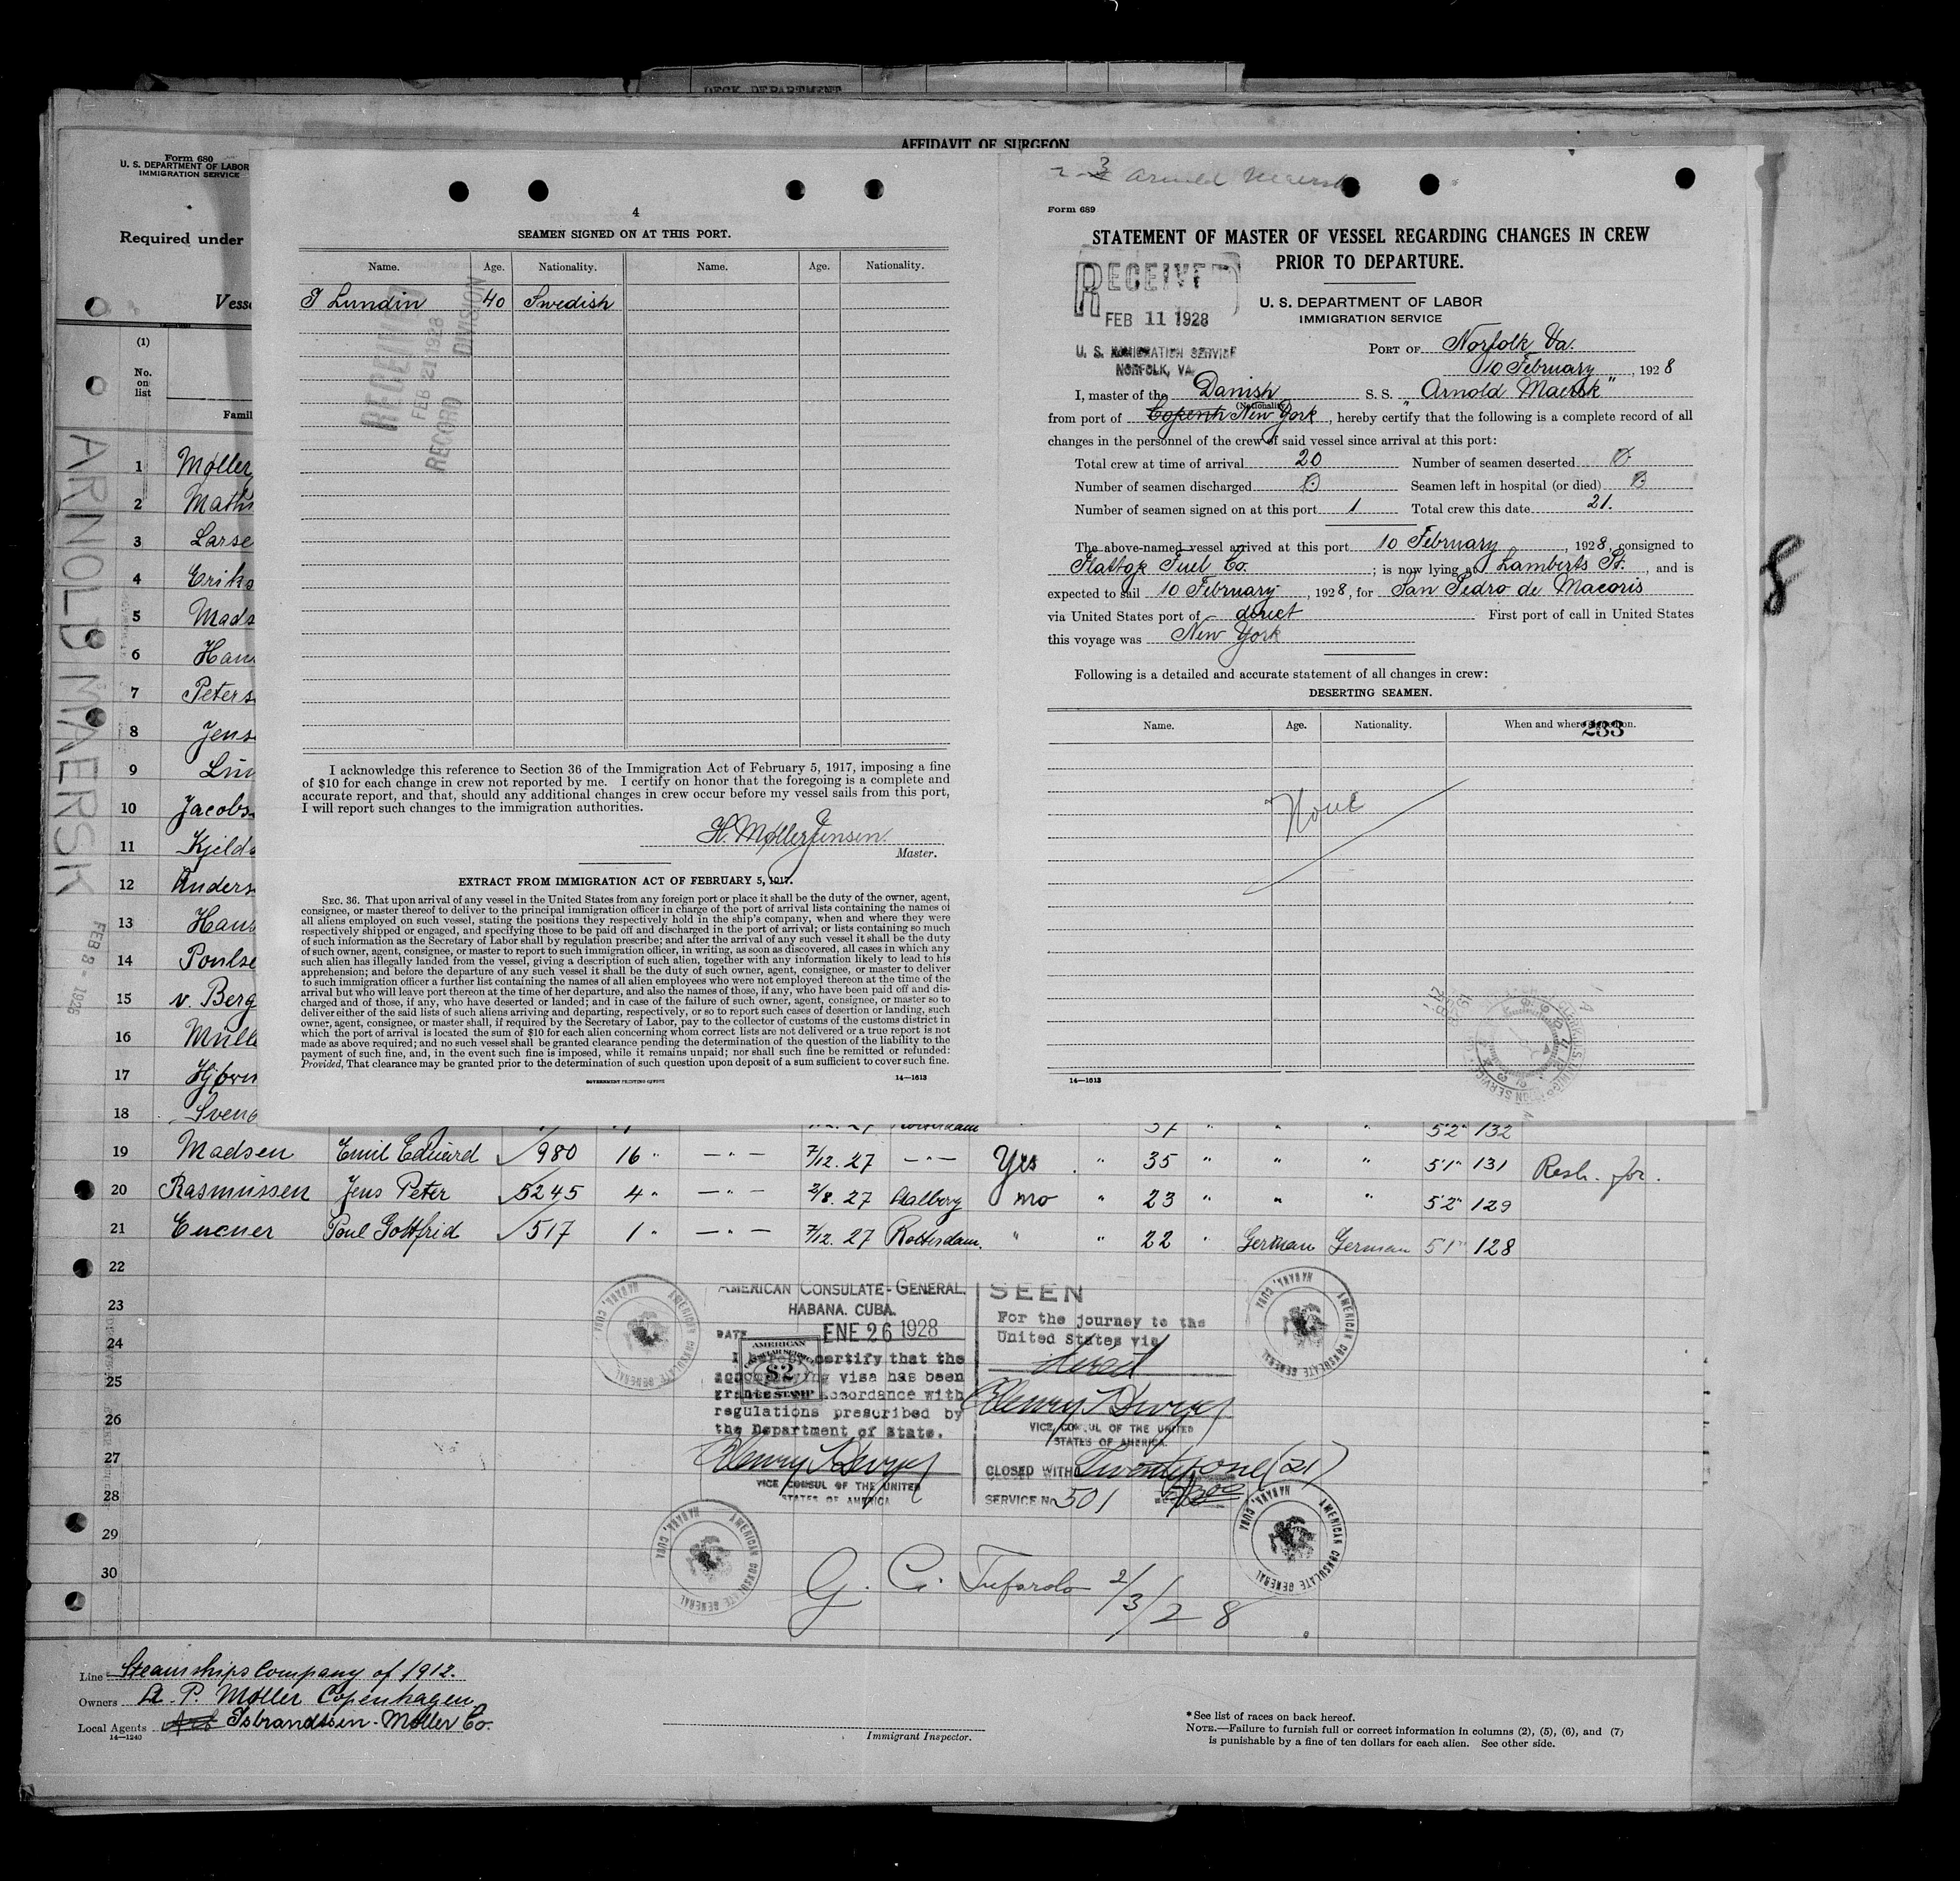 DECK DEPARTMENT
AFFIDAVIT OF SURGEON
Form 680
U. S. DEPARTMENT OF LABOR
IMMIGRATION SERVICE
Required under
(1)
No.
on
list
ARNOLD MAERSK
FEB 8 - 1928
1 Møller
2
3
4
5
6
7
8
9
10
11
12
13
14
15 v. Berg
16
17
18
4
SEAMEN SIGNED ON AT THIS PORT.
Name. Age. Nationality. Name. Age. Nationality.
J Lundin 40 Swedish
RECEIVED
FEB 21 1928
RECORD DIVISION
I acknowledge this reference to Section 36 of the Immigration Act of February 5, 1917, imposing a fine
of $10 for each change in crew not reported by me. I certify on honor that the foregoing is a complete and
accurate report, and that, should any additional changes in crew occur before my vessel sails from this port,
I will report such changes to the immigration authorities.
H. Møller Jensen
Master.
EXTRACT FROM IMMIGRATION ACT OF FEBRUARY 5, 1917.
SEC. 36. That upon arrival of any vessel in the United States from any foreign port or place it shall be the duty of the owner, agent,
consignee, or master thereof to deliver to the principal immigration officer in charge of the port of arrival lists containing the names of
all aliens employed on such vessel, stating the positions they respectively hold in the ship's company, when and where they were
respectively shipped or engaged, and specifying those to be paid off and discharged in the port of arrival; or lists containing so much
of such information as the Secretary of Labor shall by regulation prescribe; and after the arrival of any such vessel it shall be the duty
of such owner, agent, consignee, or master to report to such immigration officer, in writing, as soon as discovered, all cases in which any
such alien has illegally landed from the vessel, giving a description of such alien, together with any information likely to lead to his
apprehension; and before the departure of any such vessel it shall be the duty of such owner, agent, consignee, or master to deliver
to such immigration officer a further list containing the names of all alien employees who were not employed thereon at the time of the
arrival but who will leave port thereon at the time of her departure, and also the names of those, if any, who have been paid off and dis-
charged and of those, if any, who have deserted or landed; and in case of the failure of such owner, agent, consignee, or master so to
deliver either of the said lists of such aliens arriving and departing, respectively, or so to report such cases of desertion or landing, such
owner, agent, consignee, or master shall, if required by the Secretary of Labor, pay to the collector of customs of the customs district in
which the port of arrival is located the sum of $10 for each alien concerning whom correct lists are not delivered or a true report is not
made as above required; and no such vessel shall be granted clearance pending the determination of the question of the liability to the
payment of such fine, and, in the event such fine is imposed, while it remains unpaid; nor shall such fine be remitted or refunded:
Provided, That clearance may be granted prior to the determination of such question upon deposit of a sum sufficient to cover such fine.
GOVERNMENT PRINTING OFFICE 14—1613
Arnold Maersk
Form 689
STATEMENT OF MASTER OF VESSEL REGARDING CHANGES IN CREW
PRIOR TO DEPARTURE.
RECEIVED
FEB 11 1928
U. S. IMMIGRATION SERVICE
NORFOLK, VA.
U. S. DEPARTMENT OF LABOR
IMMIGRATION SERVICE
PORT OF Norfolk Va.
10 February, 1928
I, master of the Danish S. S. "Arnold Maersk"
(Nationality)
from port of Copenh New York, hereby certify that the following is a complete record of all
changes in the personnel of the crew of said vessel since arrival at this port:
Total crew at time of arrival 20 Number of seamen deserted 0
Number of seamen discharged 0 Seamen left in hospital (or died) 0
Number of seamen signed on at this port 1 Total crew this date 21.
The above-named vessel arrived at this port 10 February, 1928, consigned to
Fuel Co.; is now lying at Lamberts Pt., and is
expected to sail 10 February, 1928, for San Pedro de Macoris
via United States port of direct First port of call in United States
this voyage was New York
Following is a detailed and accurate statement of all changes in crew:
DESERTING SEAMEN.
Name. Age. Nationality. When and where desertion.
233
None
14—1613
8
19 Madsen Emil Eduard 980 16 " — " — 7/12.27 — " — Yes " 35 " " " 5'1" 131
20 Rasmussen Jens Peter 5245 4 " — " — 2/8.27 Aalborg no " 23 " " " 5'2" 129
21 Eucner Poul Gottfrid 517 1 " — " — 7/12.27 Rotterdam. " " 22 " German German 5'1" 128
22
23
24
25
26
27
28
29
30
AMERICAN CONSULATE-GENERAL.
HABANA. CUBA.
DATE ENE 26 1928
I hereby certify that the
accompanying visa has been
granted in accordance with
regulations prescribed by
the Department of State.
VICE CONSUL OF THE UNITED
STATES OF AMERICA
AMERICAN
CONSULAR SERVICE
$2
FEE STAMP
SEEN
For the journey to the
United States via
direct
VICE CONSUL OF THE UNITED
STATES OF AMERICA.
CLOSED WITH Twenty one (21)
SERVICE No 501
AMERICAN CONSULATE GENERAL HABANA, CUBA
AMERICAN CONSULATE GENERAL HABANA, CUBA
AMERICAN CONSULATE GENERAL HABANA, CUBA
AMERICAN CONSULATE GENERAL HABANA, CUBA
G. C. Tufarolo 2/3/28
Line Steamships Company of 1912.
Owners A. P. Møller Copenhagen
Local Agents Isbrandtsen-Møller Co.
14—1240
Immigrant Inspector.
* See list of races on back hereof.
NOTE.—Failure to furnish full or correct information in columns (2), (5), (6), and (7)
is punishable by a fine of ten dollars for each alien. See other side.